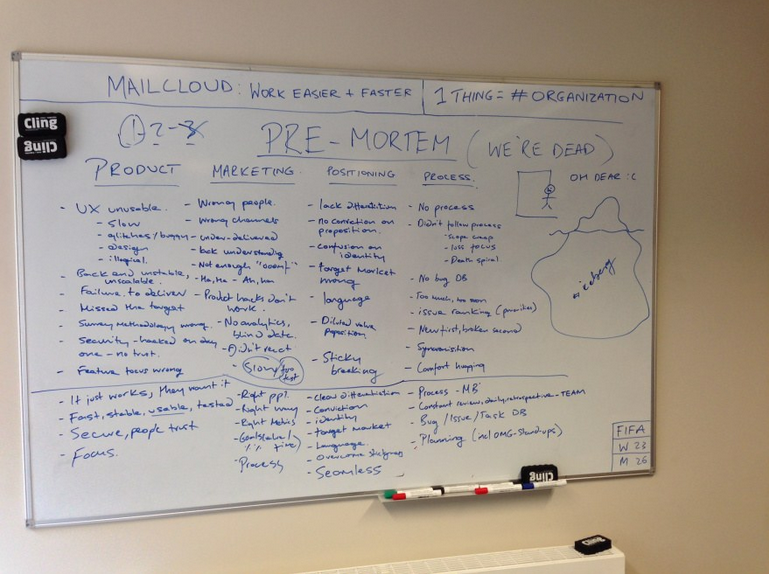 MAILCLOUD: WORK EASIER + FASTER
1 THING = # ORGANIZATION
Cling
Cling
1-2-3
PRE-MORTEM (WE'RE DEAD)
PRODUCT
- UX unusable.
- slow
- glitches/buggy
- design
- illogical.
- Back end unstable,
unscalable.
- Failure to deliver
- Missed the target
- Survey methodology wrong.
- Security - hacked on day
one - no trust.
- Feature focus wrong
MARKETING
- Wrong people.
- Wrong channels
- under-delivered
- lack understanding
- Not enough "ooomf"
- Ha, Ha - Ah, ha
- Product hacks don't
work.
- No analytics,
blind date.
- Didn't react
- Slow/too fast
POSITIONING
- lack differentiation
- no conviction on
proposition.
- confusion on
identity
- Target Market
wrong
- language
- Diluted value
proposition.
- Sticky
breaking
PROCESS
- No process
- Didn't follow process
- scope creep
- loss focus
- Death spiral.
- No bug DB
- Too much, too soon
- issue ranking (priorities)
- New first, broken second
- Synchronisition
- Comfort happing
OH DEAR :C
iceberg
- It just works, they want it
- Fast, stable, usable, tested
- Secure, people trust
- Focus.
- Right ppl.
- Right way
- Right
- Process
- Clear differentiation
- Conviction
- identity
- target market
- Language.
- Overcome
- Seamless
- Process - MB
- Constant review, daily retrospective - TEAM
- Bug / Issue / Task DB
- Planning (incl OMG-Stand-ups)
FIFA
W 23
M 26
Cling
Cling